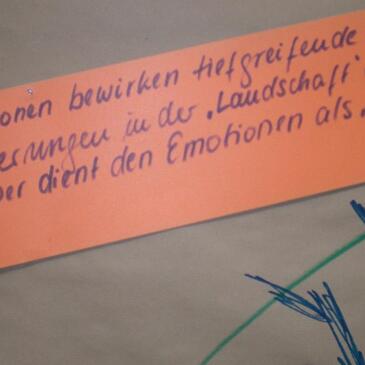 onen bewirken tiefgreifende
erungen in der 'Landschaft'
er dient den Emotionen als